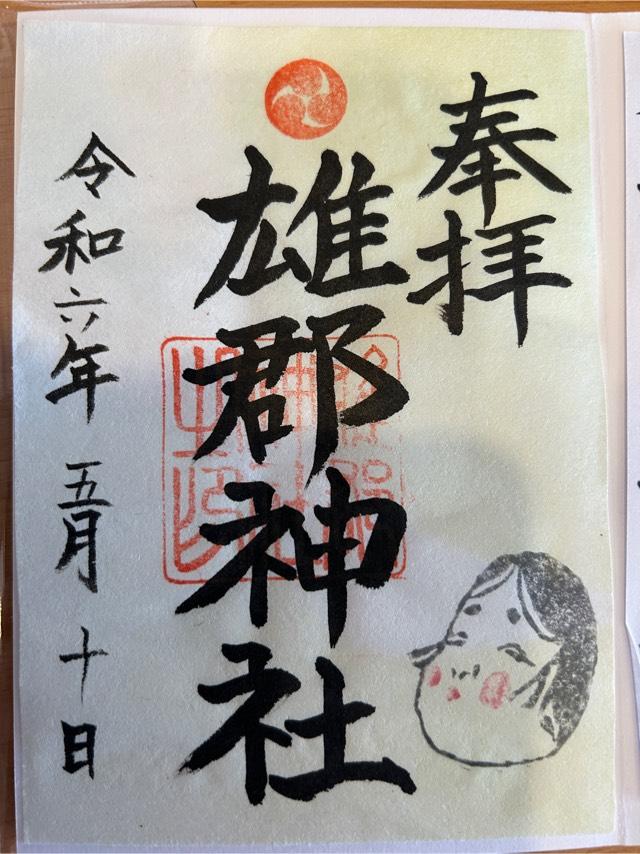 奉拝
雄郡神社
令和六年五月十日